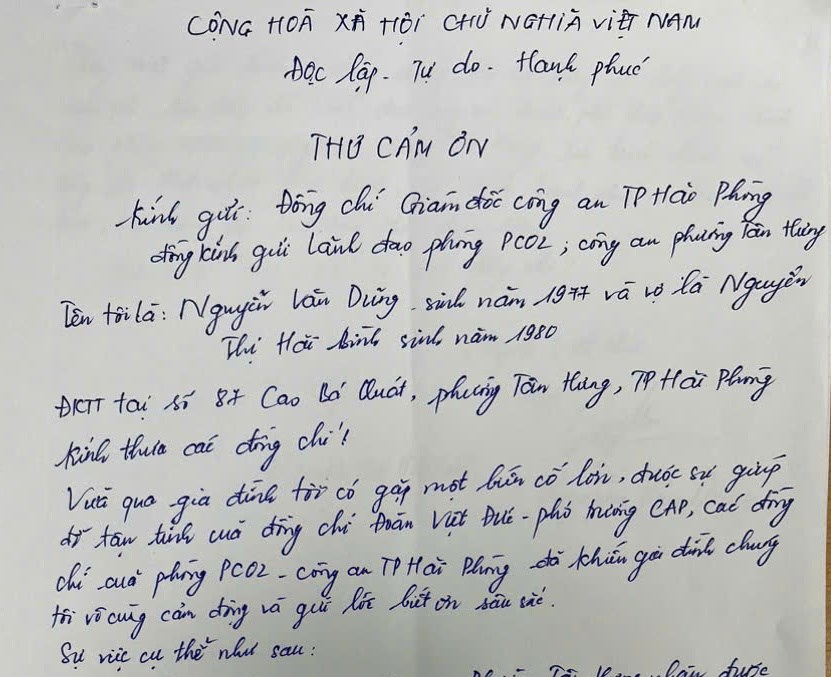 CỘNG HOÀ XÃ HỘI CHỦ NGHĨA VIỆT NAM
Độc lập - Tự do - Hạnh phúc
THƯ CẢM ƠN
Kính gửi: Đồng chí Giám đốc công an TP Hải Phòng
đồng kính gửi Lãnh đạo phòng PC02; công an phường Tân Hưng
Tên tôi là: Nguyễn Văn Dũng - sinh năm 1977 và vợ là Nguyễn
Thị Hải Bình sinh năm 1980
ĐKTT tại số 87 Cao Bá Quát, phường Tân Hưng, TP Hải Phòng
Kính thưa các đồng chí!
Vừa qua gia đình tôi có gặp một biến cố lớn, được sự giúp
đỡ tận tình của đồng chí Đoàn Việt Đức - phó trưởng CAP, các đồng
chí của phòng PC02 - công an TP Hải Phòng đã khiến gai đình chúng
tôi vô cùng cảm động và gửi lời biết ơn sâu sắc.
Sự việc cụ thể như sau: